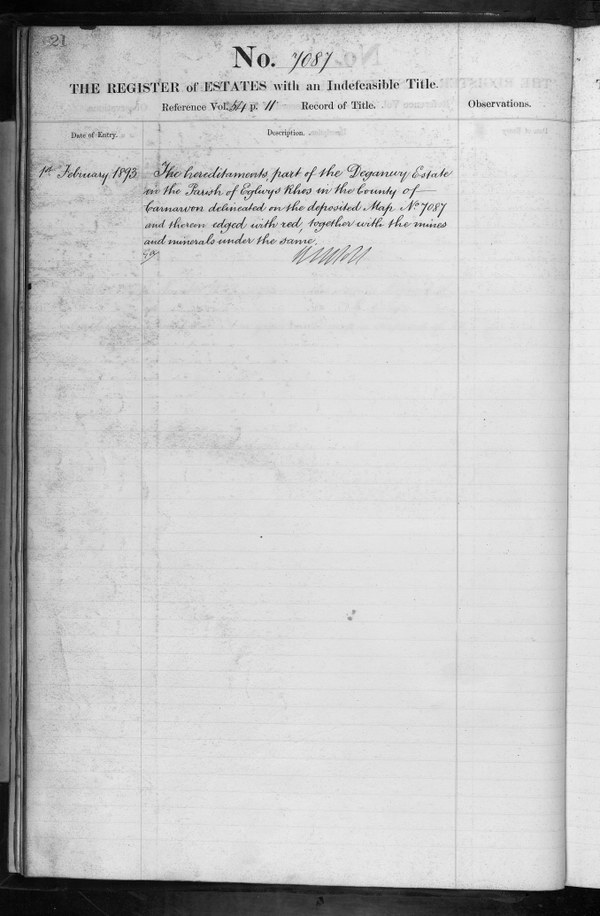 21
No. 7087
THE REGISTER of ESTATES with an Indefeasible Title.
Reference Vol. p. 11 Record of Title.
Observations.
Date of Entry.
Description.
1st February, 1893
The hereditaments, part of the Deganwy Estate
in the Parish of Eglwys Rhos in the County of
Carnarvon delineated on the deposited Map No 7087
and thereon edged with red, together with the mines
and minerals under the same.